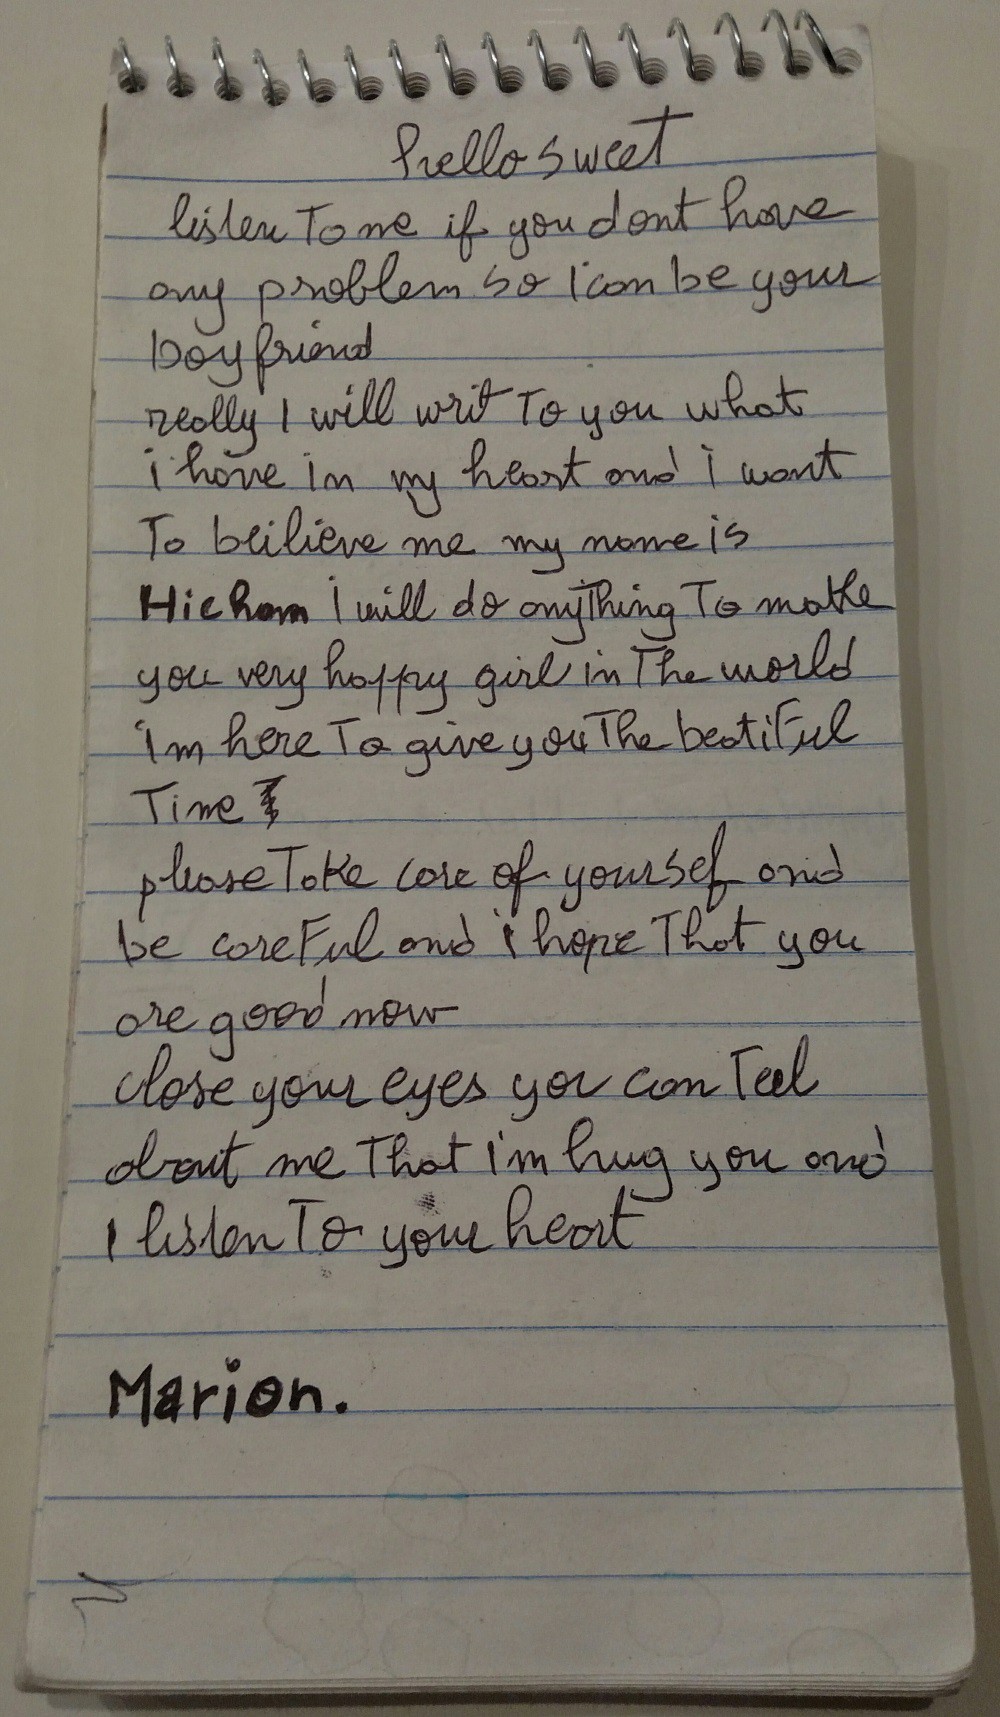 hello sweet
listen To me if you dont have
any problem so i can be your
boyfriend
really I will writ To you what
i have in my heart and i want
To beilieve me my name is
Hicham i will do anyThing To make
you very happy girl in The world
i'm here To give you The beatiFul
Time
please Take care of yoursef and
be careFul and i hope That you
are good now
close your eyes you can Teel
about me That i'm hug you and
I listen To your heart
Marion.